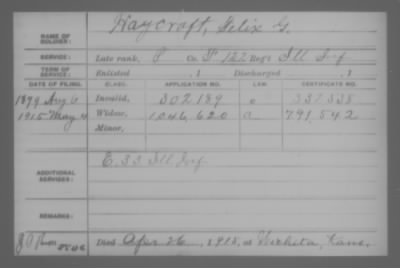 NAME OF SOLDIER: Waycraft, Felix G.
SERVICE: Late rank, P Co. F 122 Reg't Ill Inf
TERM OF SERVICE: Enlisted , 1 Discharged , 1
DATE OF FILING. CLASS. APPLICATION NO. LAW. CERTIFICATE NO.
1879 Aug 6 Invalid, 302189 337538
1915 May 4 Widow, 1046,620 791,542
Minor,
ADDITIONAL SERVICES: E. 33 Ill Inf
REMARKS:
Died Apr 26, 1915, at Wichita, Kans.